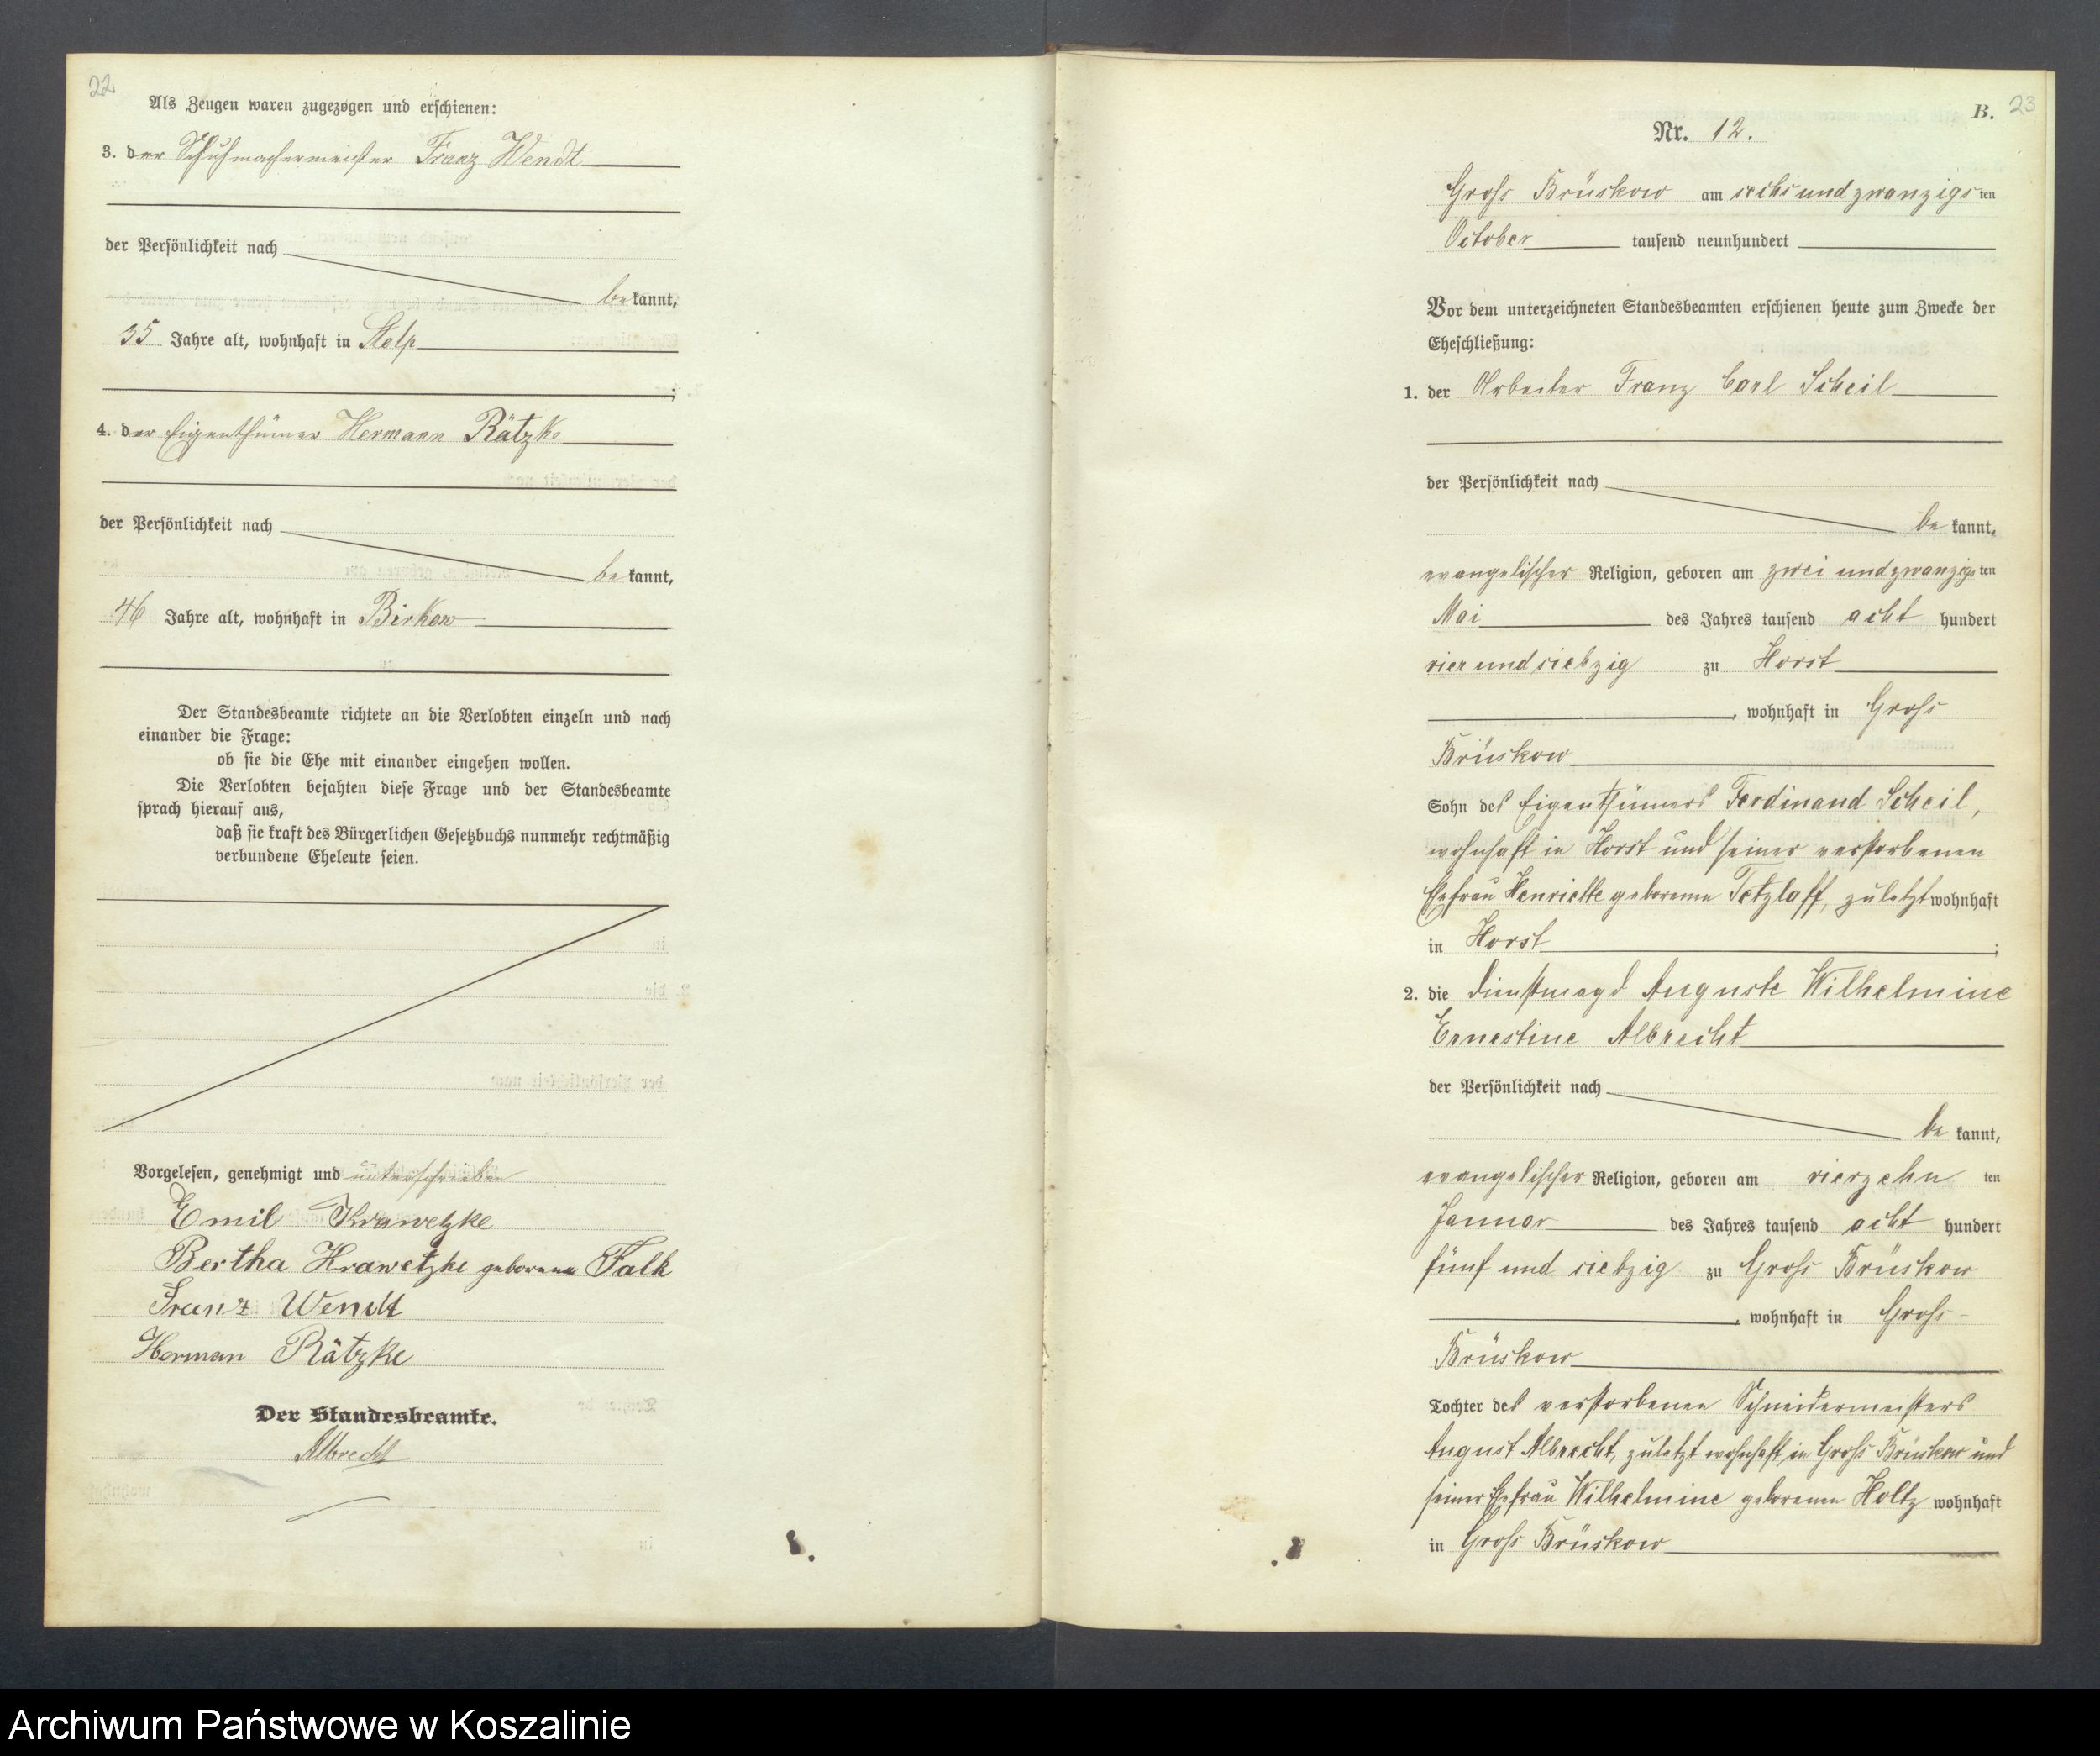 22
Als Zeugen waren zugezogen und erschienen:
3. der Schuhmachermeister Franz Wendt
der Persönlichkeit nach
bekannt,
35 Jahre alt, wohnhaft in Stolp
;
4. der Eigenthümer Hermann Rätzke
der Persönlichkeit nach
bekannt,
46 Jahre alt, wohnhaft in Birkow
Der Standesbeamte richtete an die Verlobten einzeln und nach
einander die Frage:
ob sie die Ehe mit einander eingehen wollen.
Die Verlobten bejahten diese Frage und der Standesbeamte
sprach hierauf aus,
daß sie kraft des Bürgerlichen Gesetzbuchs nunmehr rechtmäßig
verbundene Eheleute seien.
Vorgelesen, genehmigt und unterschrieben
Emil Krawetzke
Bertha Krawetzke geborene Falk
Franz Wendt
Herman Rätzke
Der Standesbeamte.
Albrecht
B. 23
Nr. 12.
Groß Brüskow am sechs und zwanzigsten
October tausend neunhundert
Vor dem unterzeichneten Standesbeamten erschienen heute zum Zwecke der
Eheschließung:
1. der Arbeiter Franz Carl Scheil
der Persönlichkeit nach
bekannt,
evangelischer Religion, geboren am zwei und zwanzigsten
Mai des Jahres tausend acht hundert
vier und siebzig zu Horst
, wohnhaft in Groß
Brüskow
Sohn des Eigenthümers Ferdinand Scheil,
wohnhaft in Horst und seiner verstorbenen
Ehefrau Henriette geborenen Tetzlaff, zuletzt wohnhaft
in Horst ;
2. die Dienstmagd Auguste Wilhelmine
Ernestine Albrecht
der Persönlichkeit nach
bekannt,
evangelischer Religion, geboren am vierzehnten
Januar des Jahres tausend acht hundert
fünf und siebzig zu Groß Brüskow
, wohnhaft in Groß-
Brüskow
Tochter des verstorbenen Schneidermeisters
August Albrecht, zuletzt wohnhaft in Groß Brüskow und
seiner Ehefrau Wilhelmine geborenen Holtz wohnhaft
in Groß Brüskow
Archiwum Państwowe w Koszalinie